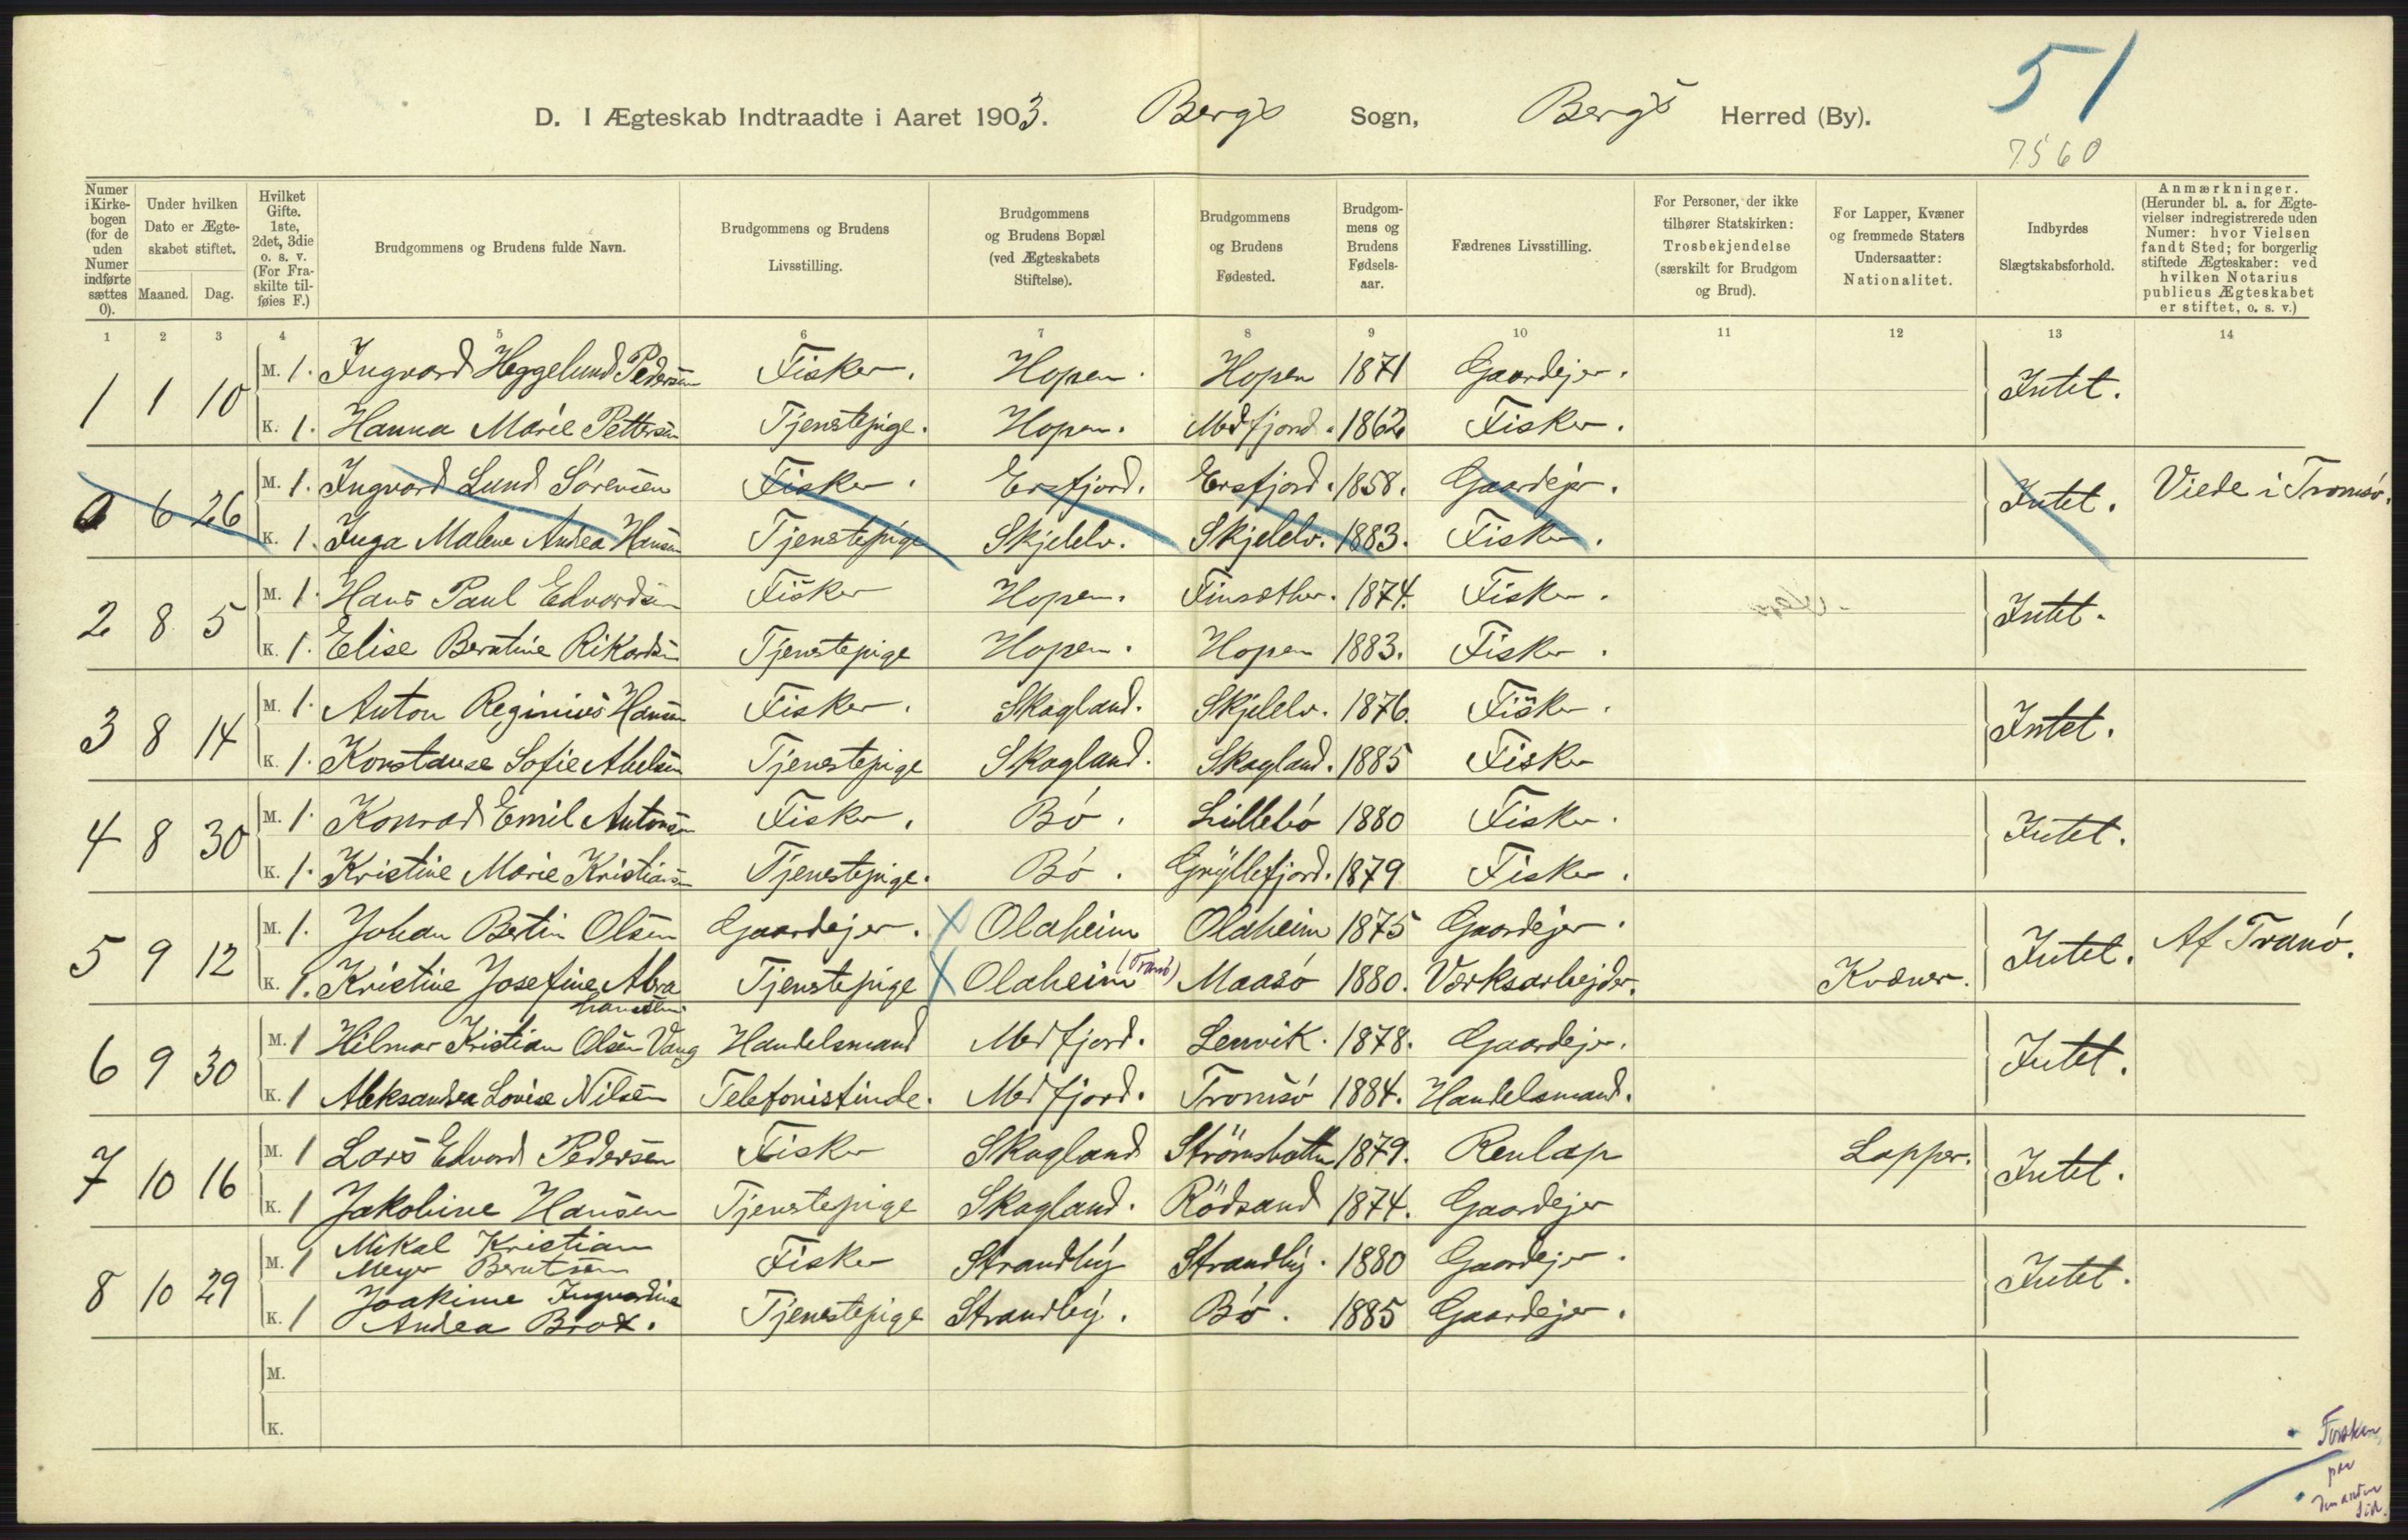 51
D. I Ægteskab Indtraadte i Aaret 1903. Bergs Sogn, Bergs Herred (By).
7560
Numer i Kirke-bogen (for de uden Numer indførte sættes 0).
Under hvilken Dato er Ægte-skabet stiftet.
Maaned. Dag.
Hvilket Gifte. 1ste, 2det, 3die o. s. v. (For Fra-skilte til-føies F.)
Brudgommens og Brudens fulde Navn.
Brudgommens og Brudens Livsstilling.
Brudgommens og Brudens Bopæl (ved Ægteskabets Stiftelse).
Brudgommens og Brudens Fødested.
Brudgom-mens og Brudens Fødsels-aar.
Fædrenes Livsstilling.
For Personer, der ikke tilhører Statskirken: Trosbekjendelse (særskilt for Brudgom og Brud).
For Lapper, Kvæner og fremmede Staters Undersaatter: Nationalitet.
Indbyrdes Slægtskabsforhold.
Anmærkninger. (Herunder bl. a. for Ægte-vielser indregistrerede uden Numer: hvor Vielsen fandt Sted; for borgerlig stiftede Ægteskaber: ved hvilken Notarius publicus Ægteskabet er stiftet, o. s. v.)
1 2 3 4 5 6 7 8 9 10 11 12 13 14
1 1 10 M. 1. Ingvard Heggelund Pedersen Fisker. Hopen. Hopen 1871 Gaardejer. Intet.
K. 1. Hanna Marie Pettersen Tjenstepige. Hopen. Medfjord. 1862 Fisker.
0 6 26 M. 1. Ingvard Lund Sörensen Fisker. Ersfjord. Ersfjord. 1858. Gaardejer. Intet. Viede i Tromsö.
K. 1. Inga Malene Andrea Hansen Tjenstepige Skjelelv. Skjelelv. 1883. Fisker.
2 8 5 M. 1. Hans Paul Edvardsen Fisker Hopen. Finsæther. 1874. Fisker. Intet.
K. 1. Elise Berntine Rikardsen Tjenstepige Hopen. Hopen 1883. Fisker.
3 8 14 M. 1. Anton Reginius Hansen Fisker. Skagland. Skjelelv. 1876. Fisker. Intet.
K. 1. Konstanse Sofie Abelsen Tjenstepige Skagland. Skagland. 1885 Fisker
4 8 30 M. 1. Konrad Emil Antonsen Fisker. Bö. Lillebö 1880 Fisker. Intet.
K. 1. Kristine Marie Kristiansen Tjenstepige. Bö. Gryllefjord. 1879 Fisker.
5 9 12 M. 1. Johan Bertin Olsen Gaardejer. X Olaheim Olaheim 1875 Gaardejer. Intet. Af Tranö.
K. 1. Kristine Josefine Abrahamsen Tjenstepige X Olaheim (Tranö) Maasö 1880. Værksarbejder. Kvæner.
6 9 30 M. 1 Hilmar Kristian Olsen Vang Handelsmand Medfjord. Lenvik. 1878. Gaardejer. Intet.
K. 1 Aleksandra Lovise Nilsen Telefonistinde. Medfjord. Tromsö 1884. Handelsmand.
7 10 16 M. 1 Lars Edvard Pedersen Fisker Skagland Strömsbotten 1879. Renlap Lapper. Intet.
K. 1 Jakobine Hansen Tjenstepige Skagland. Rödsand 1874. Gaardejer
8 10 29 M. 1 Mikal Kristian Meyer Berntsen Fisker Strandby Strandby. 1880 Gaardejer. Intet.
K. 1 Joakime Ingvardine Andrea Brox. Tjenstepige Strandby. Bö. 1885 Gaardejer.
M.
K.